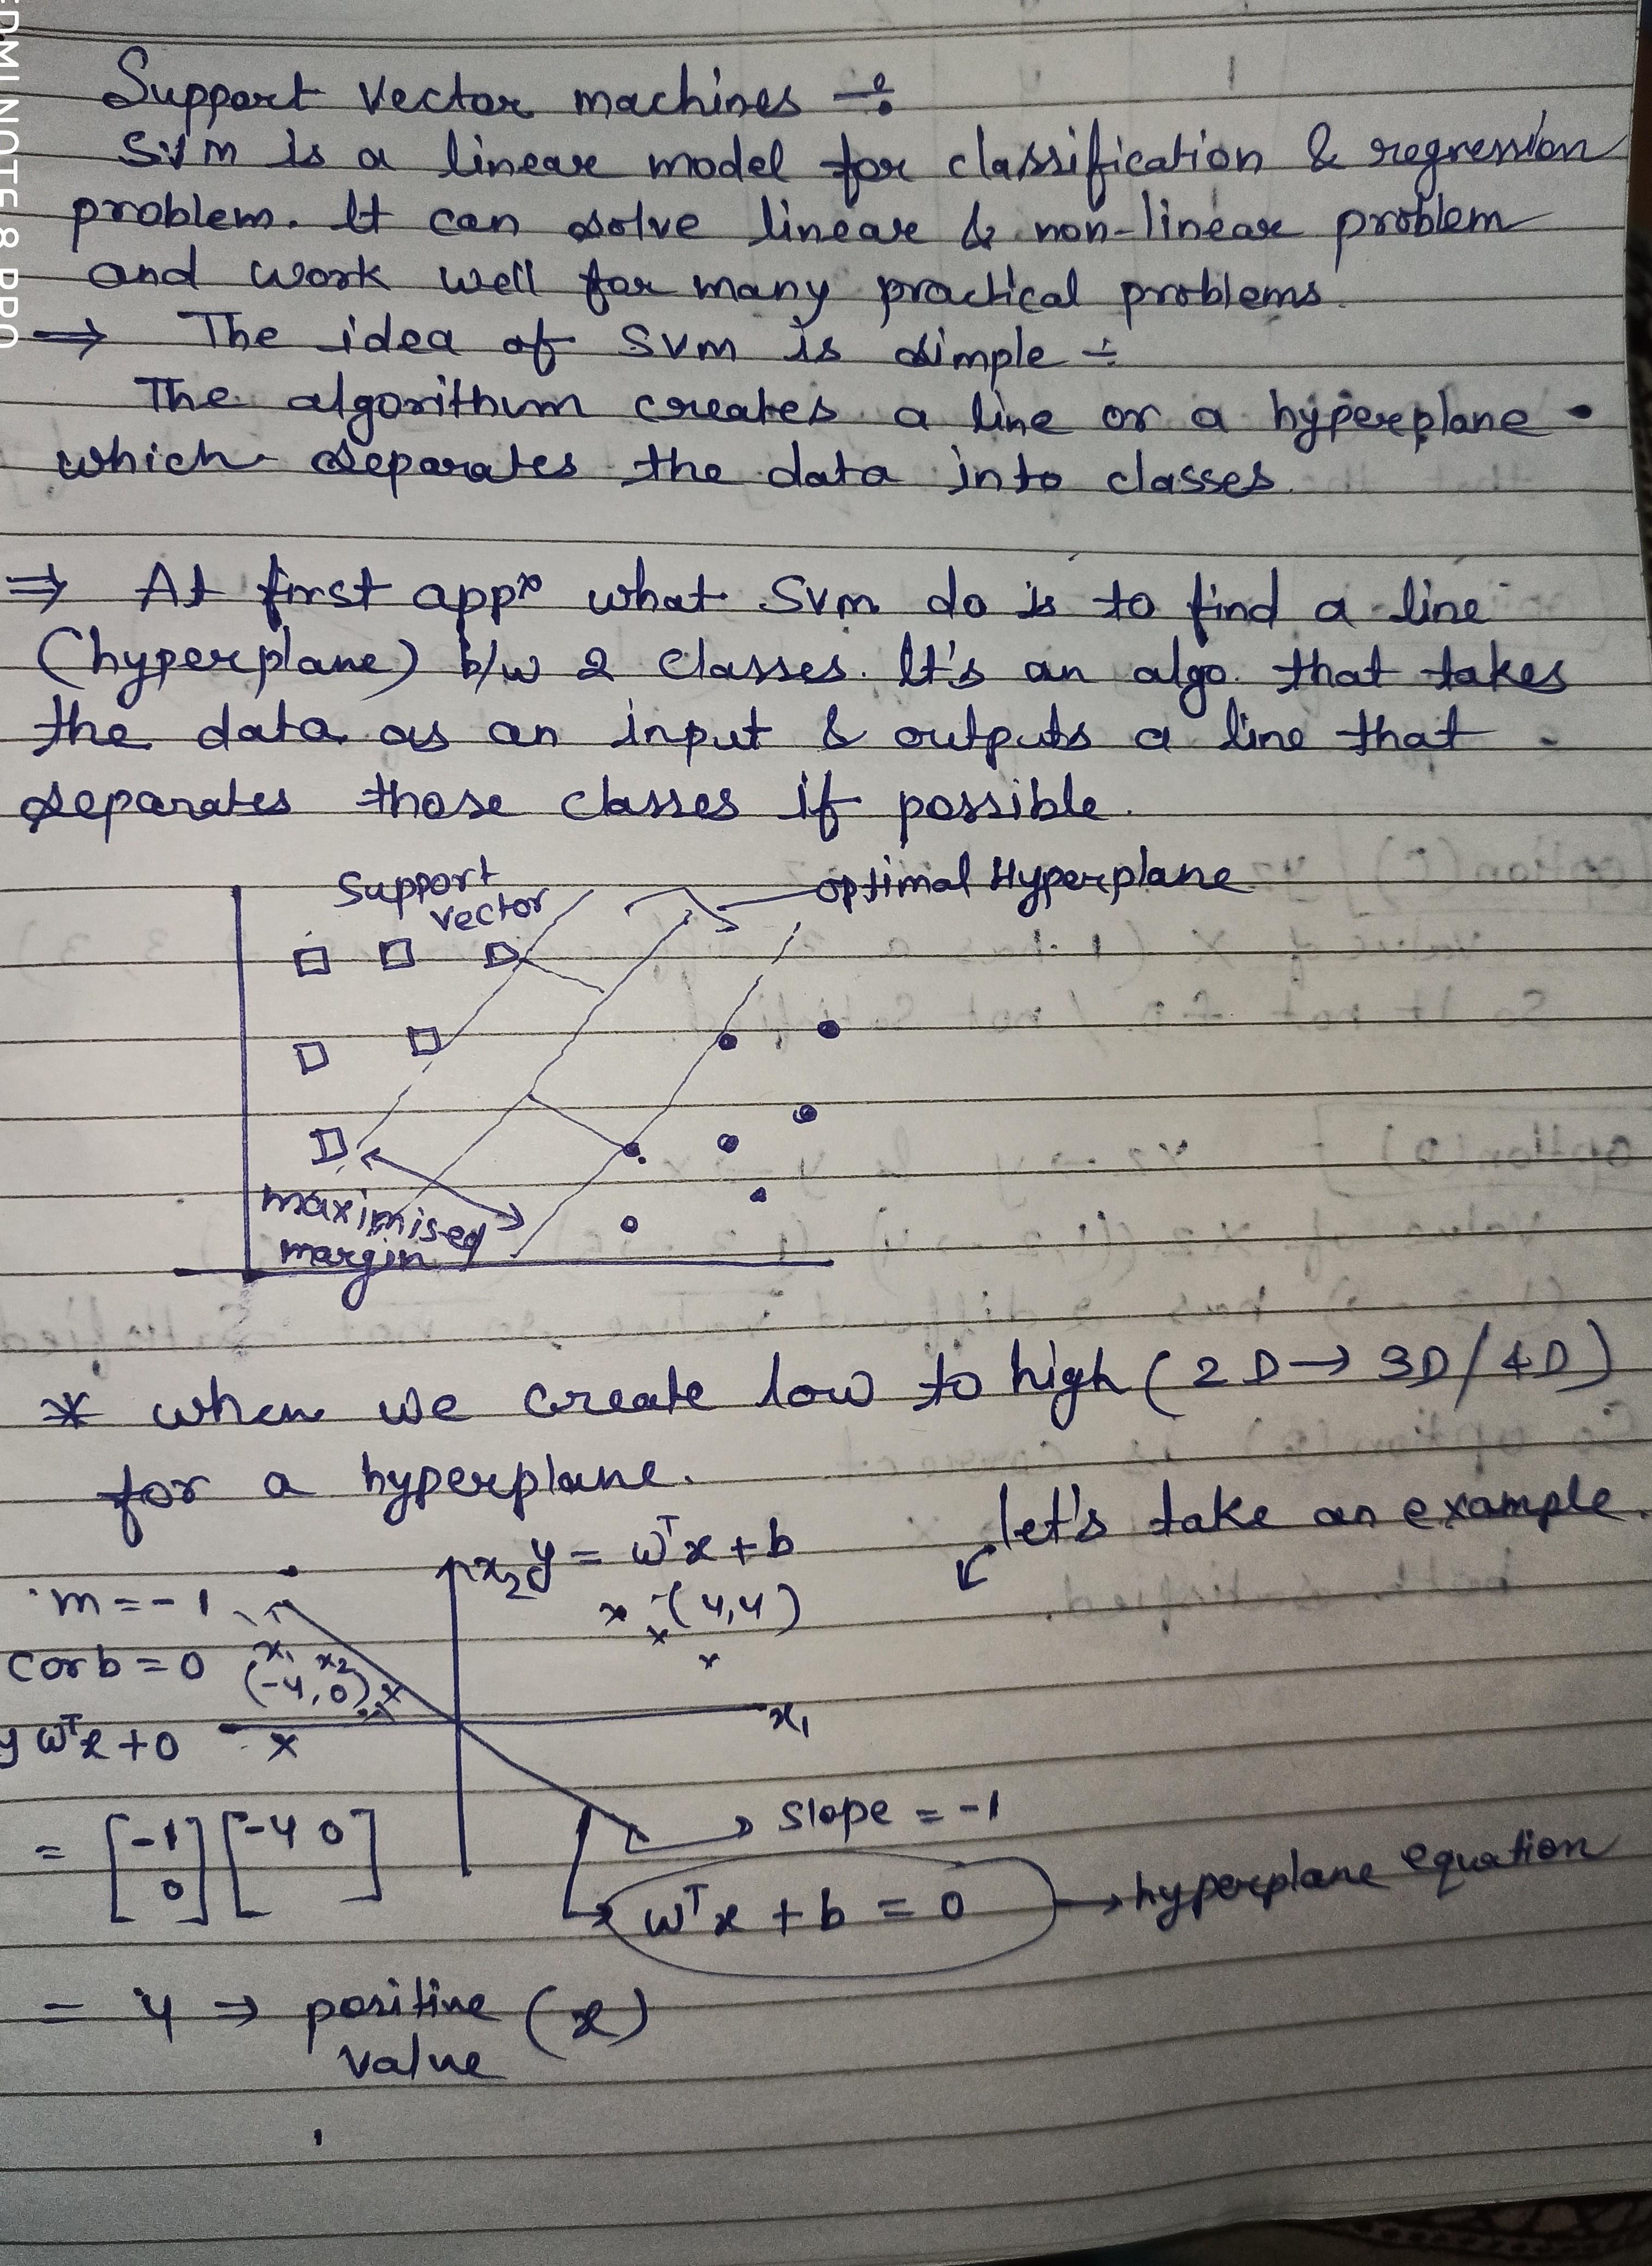 Support Vector machines ÷
SVM is a linear model for classification & regression
problem. It can solve linear & non-linear problem
and work well for many practical problems.
⇒ The idea of SVM is simple ÷
The algorithum creates a line or a hyperplane
which separates the data into classes.
⇒ At first appx what SVM do is to find a line
(hyperplane) b/w 2 classes. It's an algo. that takes
the data as an input & outputs a line that
separates those classes if possible.
Support
vector
optimal Hyperplane
maximised
margin
* when we create low to high (2D → 3D/4D)
for a hyperplane.
let's take an example.
x₂
y = wᵀx + b
m = -1
(4,4)
c or b = 0
x₁ x₂
(-4, 0)
x₁
y wᵀx + 0
slope = -1
= [-1 0] [-4 0]
wᵀx + b = 0 → hyperplane equation
= 4 → positive (x)
value
REDMI NOTE 8 PRO